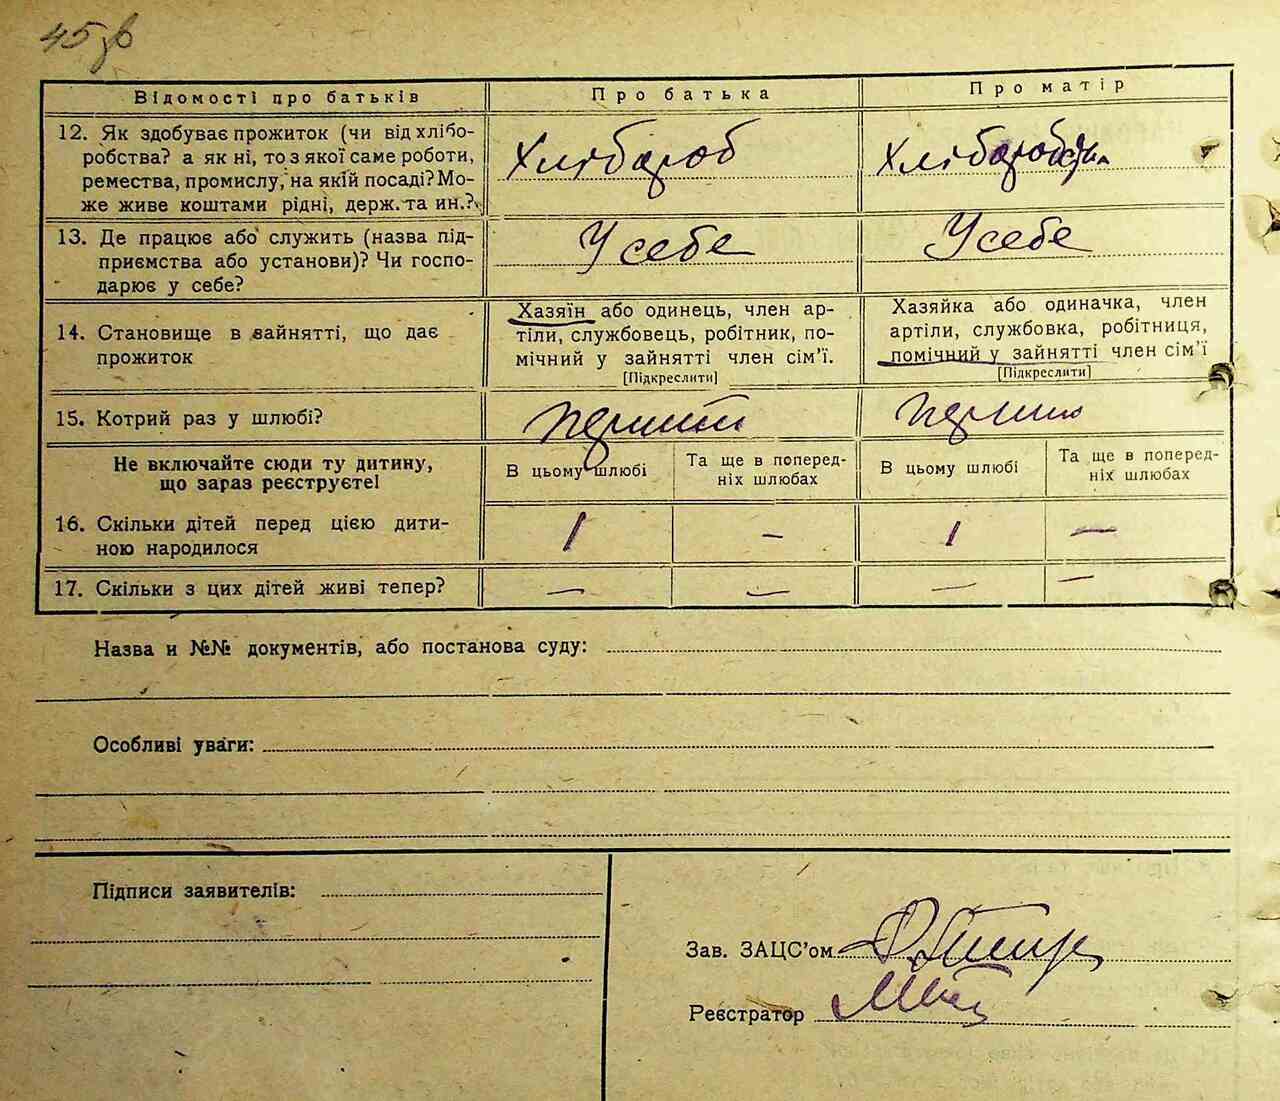 45 зв
Відомості про батьків Про батька Про матір
12. Як здобуває прожиток (чи від хлібо-
робства? а як ні, то з якої саме роботи,
ремества, промислу, на якій посаді? Мо-
же живе коштами рідні, держ. та ин.?
Хлібороб Хліборобств
13. Де працює або служить (назва під-
приємства або установи)? Чи госпо-
дарює у себе?
У себе У себе
14. Становище в зайнятті, що дає
прожиток
Хазяїн або одинець, член ар-
тіли, службовець, робітник, по-
мічний у зайнятті член сім’ї.
[Підкреслити]
Хазяйка або одиначка, член
артіли, службовка, робітниця,
помічний у зайнятті член сім’ї
[Підкреслити]
15. Котрий раз у шлюбі?
перший перший
Не включайте сюди ту дитину,
що зараз реєструєте!
В цьому шлюбі
Та ще в поперед-
ніх шлюбах
В цьому шлюбі
Та ще в поперед-
ніх шлюбах
16. Скільки дітей перед цією дити-
ною народилося
1 — 1 —
17. Скільки з цих дітей живі тепер? — — — —
Назва и №№ документів, або постанова суду:
Особливі уваги:
Підписи заявителів:
Зав. ЗАЦС’ом
Реєстратор